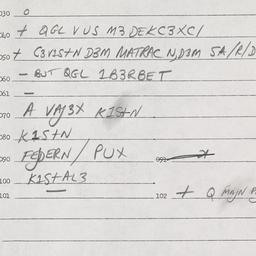 030 0
040 + QGL VUS M3 DEKC3XC/
050 + C3V1S+N D3M MATRAC N,D3M SA/R/D
060 - BUT QGL 1B3RBET
061 -
070 A VAJ3X K1S+N
080 K1S+N
090 FEDERN / PUX
100 K1S+AL3
101
102 + Q MAJN